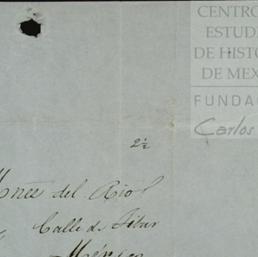 CENTRO
ESTUD
DE HISTO
DE MEX
FUNDAC
Carlos
2½
del Rio
Calle de